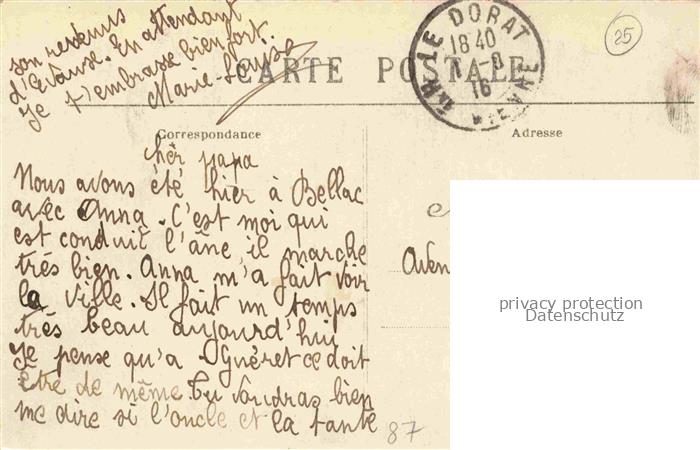 son revenus
d'Evause. En attendant
je t'embrasse bien fort.
Marie-Louise
CARTE POSTALE
LE DORAT
18 40
16
HTE VIENNE
25
Correspondance
Adresse
cher papa
Nous avons été hier à Bellac
avec Anna. C'est moi qui
est conduit l'âne, il marche
très bien. Anna m'a fait voir
la ville. Il fait un temps
très beau aujourd'hui
Je pense qu'a Guéret ce doit
être de même. Tu voudras bien
me dire si l'oncle et la tante
Aven
87
privacy protection
Datenschutz